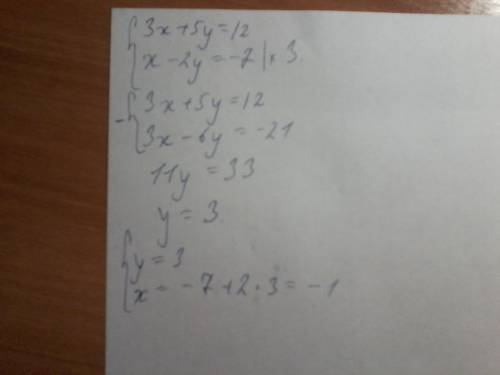 3x+5y=12
x-2y=-7|×3
3x+5y=12
3x-6y=-21
11y=33
y=3
y=3
x=-7+2·3=-1